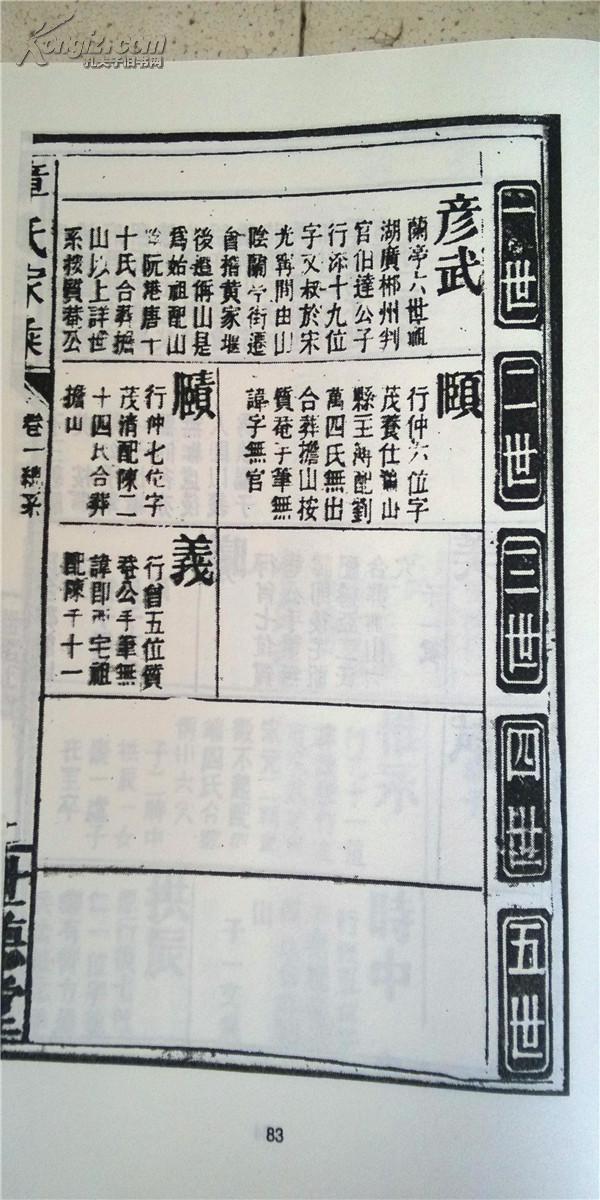 Kongfz.com
孔夫子旧书网
一世
二世
三世
四世
五世
彦武
蘭亭六世祖
湖廣郴州判
官伯達公子
行添十九位
字又叔於宋
光寧間由山
陰蘭亭街遷
會稽黄家堰
後遷偁山是
為始祖配山
陰阮港唐十
十氏合葬擔
山以上詳世
系按質菴公
頤
行仲六位字
茂養仕
縣王溥配劉
萬四氏無出
合葬擔山按
質菴手筆無
諱字無官
賾
行仲七位字
茂清配陳二
十四氏合葬
擔山
義
行曾五位質
菴公手筆無
諱即西宅祖
配陳千十一
章氏家乘
卷一總系
83